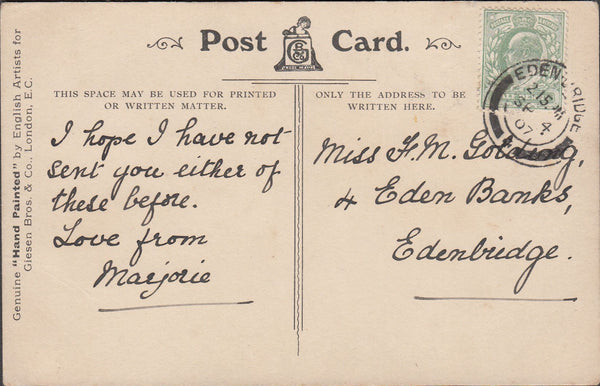 Post Card.
THIS SPACE MAY BE USED FOR PRINTED
OR WRITTEN MATTER.
I hope I have not
sent you either of
these before.
Love from
Marjorie
ONLY THE ADDRESS TO BE
WRITTEN HERE.
Miss F. M. Golding,
4 Eden Banks,
Edenbridge.
EDENBRIDGE
SP 4
07
Genuine "Hand Painted" by English Artists for
Giesen Bros. & Co., London, E.C.